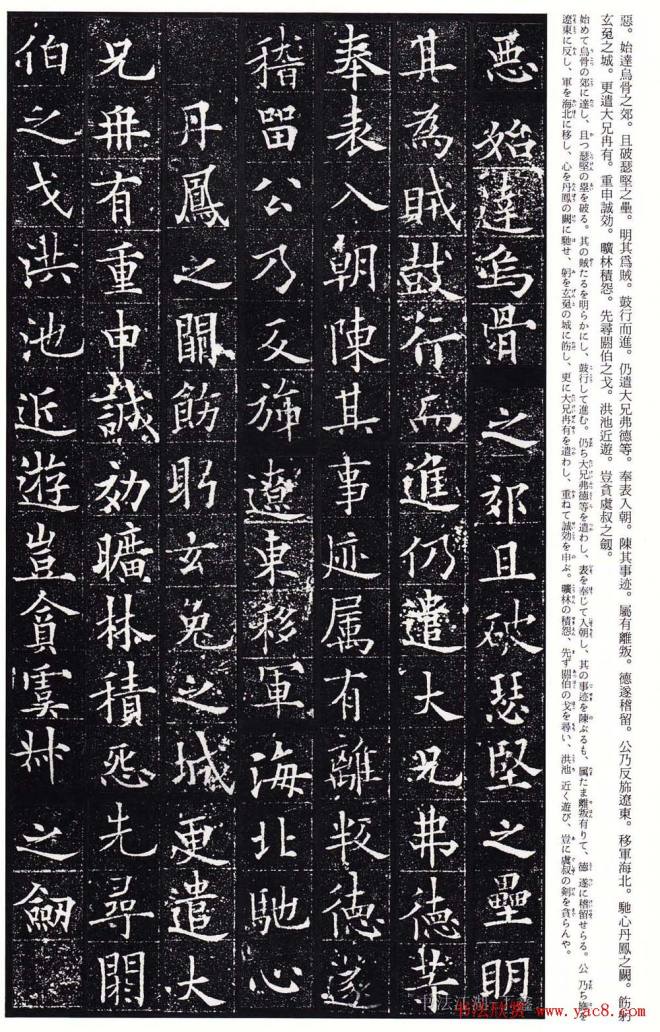 惡。始達烏骨之郊。且破瑟堅之壘。明其爲賊。鼓行而進。仍遣大兄弗德等。奉表入朝。陳其事迹。屬有離叛。德遂稽留。公乃反斾遼東。移軍海北。馳心丹鳳之闕。飭躬
玄兔之城。更遣大兄冉有。重申誠効。曠林積怨。先尋閼伯之戈。洪池近遊。豈貪虞叔之劔。
始めて烏骨の郊に達し、且つ瑟堅の壘を破る。其の賊たるを明らかにし、鼓行して進む。仍ち大兄弗德等を遣わし、表を奉じて入朝し、其の事迹を陳ぶるも、属たま離叛有りて、德 遂に稽留せらる。公 乃ち旆を
遼東に反し、軍を海北に移し、心を丹鳳の闕に馳せ、躬を玄兔の城に飭し、更に大兄冉有を遣わし、重ねて誠効を申ぶ。曠林の積怨、先ず閼伯の戈を尋い、洪池 近く遊び、豈に虞叔の剣を貪らんや。
惡始達烏骨之郊且破瑟堅之壘明
其為賊鼓行而進仍遣大兄弗德等
奉表入朝陳其事迹属有離叛德遂
稽留公乃反斾遼東移軍海北馳心
丹鳳之闕飭躬玄兔之城更遣大
兄冉有重申誠効曠林積怨先尋閼
伯之戈洪池近遊豈貪虞叔之劔
书法欣赏 www.yac8.com